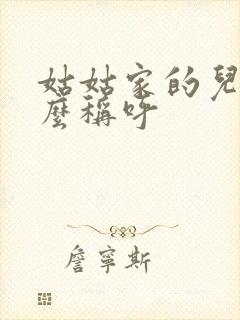 姑姑家的兒
麼稱呼
詹寧斯